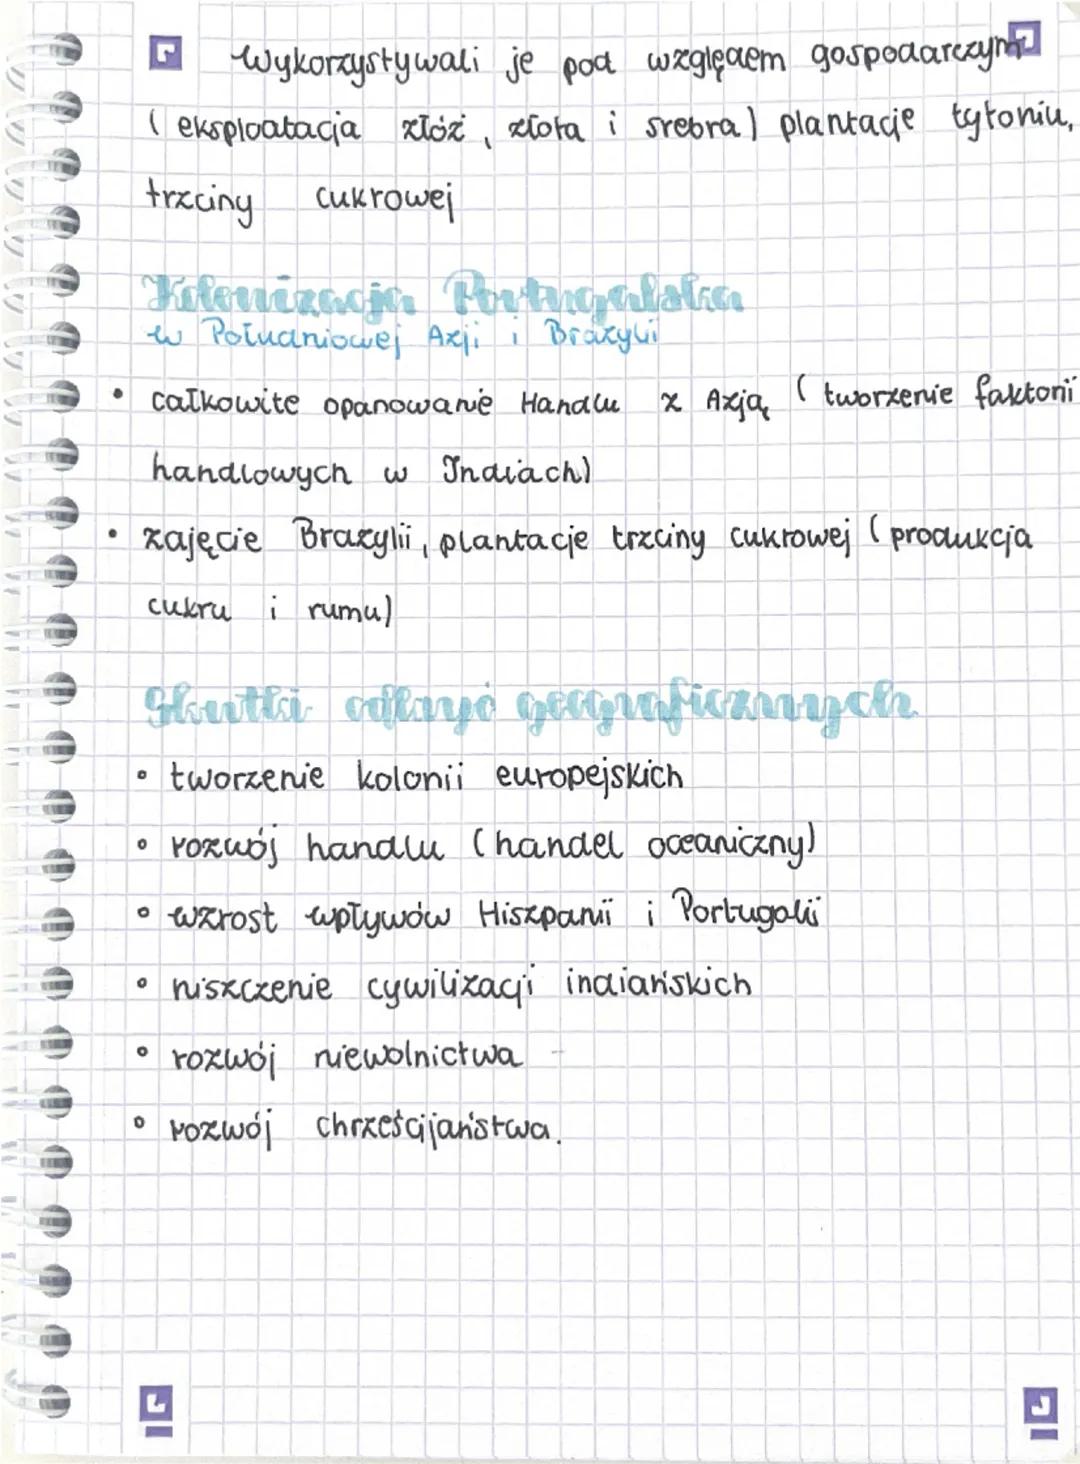 Wykorzystywali je pod względem gospodarczym
(eksploatacja złóż, złota i srebra) plantacje tytoniu,
trzciny cukrowej
Kolonizacja Portugalska
w Południowej Azji i Brazylii
• całkowite opanowanie Handlu z Azją (tworzenie faktorii
handlowych w Indiach)
• zajęcie Brazylii, plantacje trzciny cukrowej (produkcja
cukru i rumu)
Skutki odkryć geograficznych
• tworzenie kolonii europejskich
• rozwój handlu (handel oceaniczny)
• wzrost wpływów Hiszpanii i Portugalii
• niszczenie cywilizacji indiańskich
• rozwój niewolnictwa
• rozwój chrześcijaństwa.